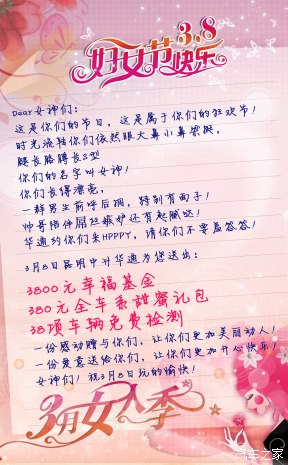 3.8
妇女节快乐
Dear女神们：
这是你们的节日，这是属于你们的狂欢节！
时光流转你们依然眼大鼻小鼻梁挺，
腿长胳膊长S型
你们的名字叫女神！
你们长得漂亮，
一群男生前呼后拥，特别有面子！
帅哥陪伴屌丝嫉妒还有起腻哒！
华通约你们来HPPPY，请你们不要羞答答！
3月8日昆明中升华通为您送出：
3800元幸福基金
380元全车系甜蜜礼包
38项车辆免费检测
一份感动赠与你们，让你们更加美丽动人！
一份爱意送给你们，让你们更加开心快乐！
女神们！祝3月8日玩的愉快！
3月女人季
汽车之家